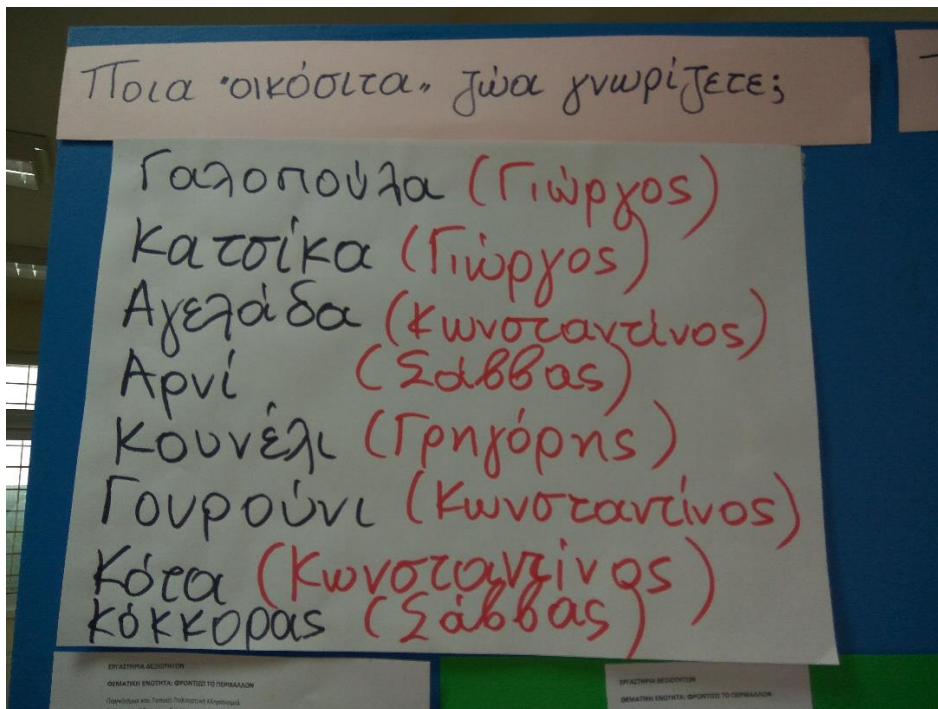 Ποια "οικόσιτα" ζώα γνωρίζετε;
Γαλοπούλα (Γιώργος)
Κατσίκα (Γιώργος)
Αγελάδα (Κωνσταντίνος)
Αρνί (Σάββας)
Κουνέλι (Γρηγόρης)
Γουρούνι (Κωνσταντίνος)
Κότα (Κωνσταντίνος)
κόκκορας (Σάββας)
ΕΡΓΑΣΤΗΡΙΑ ΔΕΞΙΟΤΗΤΩΝ
ΘΕΜΑΤΙΚΗ ΕΝΟΤΗΤΑ: ΦΡΟΝΤΙΖΩ ΤΟ ΠΕΡΙΒΑΛΛΟΝ
Παγκόσμια και Τοπική Πολιτιστική Κληρονομιά
ΕΡΓΑΣΤΗΡΙΑ ΔΕΞΙΟΤΗΤΩΝ
ΘΕΜΑΤΙΚΗ ΕΝΟΤΗΤΑ: ΦΡΟΝΤΙΖΩ ΤΟ ΠΕΡΙΒΑΛΛΟΝ